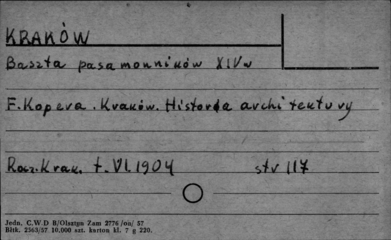 KRAKÓW
Baszta pasamonników XIVw
F. Kopera. Kraków. Historja architektury
Rocz. Krak. t. VI. 1904 str 117
Jedn. C.W.D B/Olsztyn Zam 2776/on/ 57
Bltk. 2563/57 10.000 szt. karton kl. 7 g 220.